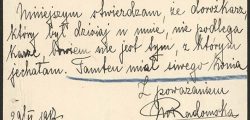 Niniejszym stwierdzam, że dorożkarz
który był dzisiaj u mnie, nie podlega
karze bowiem nie jest tym, z którym
jechałam. Tamten miał siwego konia
Z poważaniem
Radomska